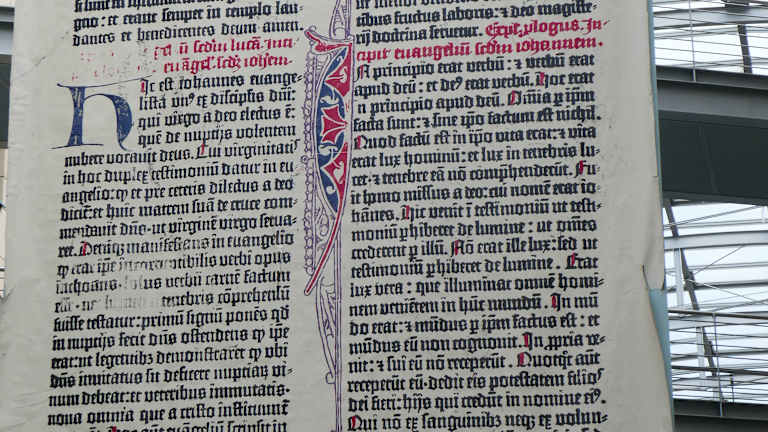 gno: et erant semper in templo lau-
dantes et benedicentes deum amen.
Hic est iohannes euange-
lista vn⁹ ex discipl̄is dn̄i:
qui virgo a deo electus ē:
quē de nuptijs volentem
nubere vocauit deus. Cui virginitat̄
in hoc duplex testimoniū datur in eu-
angelio: qꝫ et pre ceteris dilectus a deo
dicit̄: et huic matrem suā de cruce com-
mendauit dn̄s: ut virginē virgo serua-
ret. Deniqꝫ manifestans in euangelio
qꝫ erat ip̄e incorruptibilis verbi opus
inchoans. solus verbū carnē factum
esse. nec lumen a tenebris cōprehensū
fuisse testatur: primū signū ponēs qd̄
in nuptijs fecit dn̄s ostendens qꝫ ip̄e
erat: ut legentibꝫ demonstraret qꝫ vbi
dn̄s inuitatus sit deficere nuptiaꝝ vi-
num debeat: et veteribus inmutatis.
noua omnia que a cristo instituunt̄
tibus fructus laboris: et deo magiste-
rij doctrina seruetur. Expl̄. ꝓlogus. In-
cipit euangeliū scd̄m iohannem.
In principio erat verbū: et verbū erat
apud deū: et de⁹ erat verbū. Hoc erat
in principio apud deū. Om̄ia ꝑ ip̄m
facta sunt: et sine ip̄o factum est nichil.
Quod factū est in ip̄o vita erat: et vita
erat lux hominū: et lux in tenebris lu-
cet. et tenebre eā nō cōprehenderūt. Fu-
it homo missus a deo: cui nomē erat io-
hānes. Hic venit ī testimoniū ut testi-
moniū ꝑhiberet de lumine: ut om̄es
crederent ꝑ illū. Nō erat ille lux: sed ut
testimoniū ꝑhiberet de lumine. Erat
lux vera: que illuminat omnē homi-
nem venientem in hūc mundū. In mū-
do erat: et mūdus ꝑ ip̄m factus est: et
mūdus eū non cognouit. In ꝓpria ve-
nit: et sui eū nō receperūt. Quotqt̄ aūt
receperūt eū. dedit eis potestatem filios
dei fieri: hijs qui credūt in nomine ei⁹.
Qui nō ex sanguinibꝫ neqꝫ ex volun-